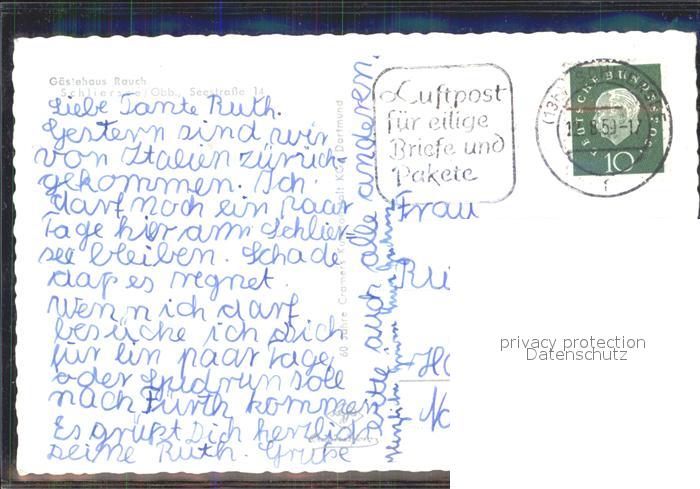 Gästehaus Rauch
Schliersee/Obb., Seestraße 14
Liebe Tante Ruth.
Gestern sind wir
von Italien zürück
gekommen. Ich
darf noch ein paar
Tage hier am Schlier-
see bleiben. Schade
daß es regnet.
Wenn ich darf
besüche ich Dich
für ein paar Tage,
oder
nach Fürth kommen
Es grüßt Dich herzlich
Deine Ruth. Grüße
bitte auch alle anderen.
60 Jahre Cramers Kunstanstalt KG, Dortmund
Luftpost
für eilige
Briefe und
Pakete
DEUTSCHE BUNDESPOST
10
Frau
privacy protection
Datenschutz